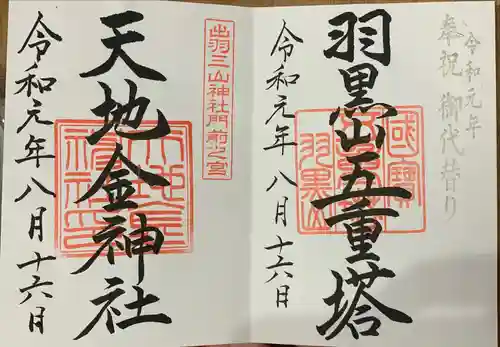 令和元年
奉祝 御代替り
羽黒山五重塔
國寶
羽黒山
令和元年八月十六日
出羽三山神社門前之宮
天地金神社
令和元年八月十六日